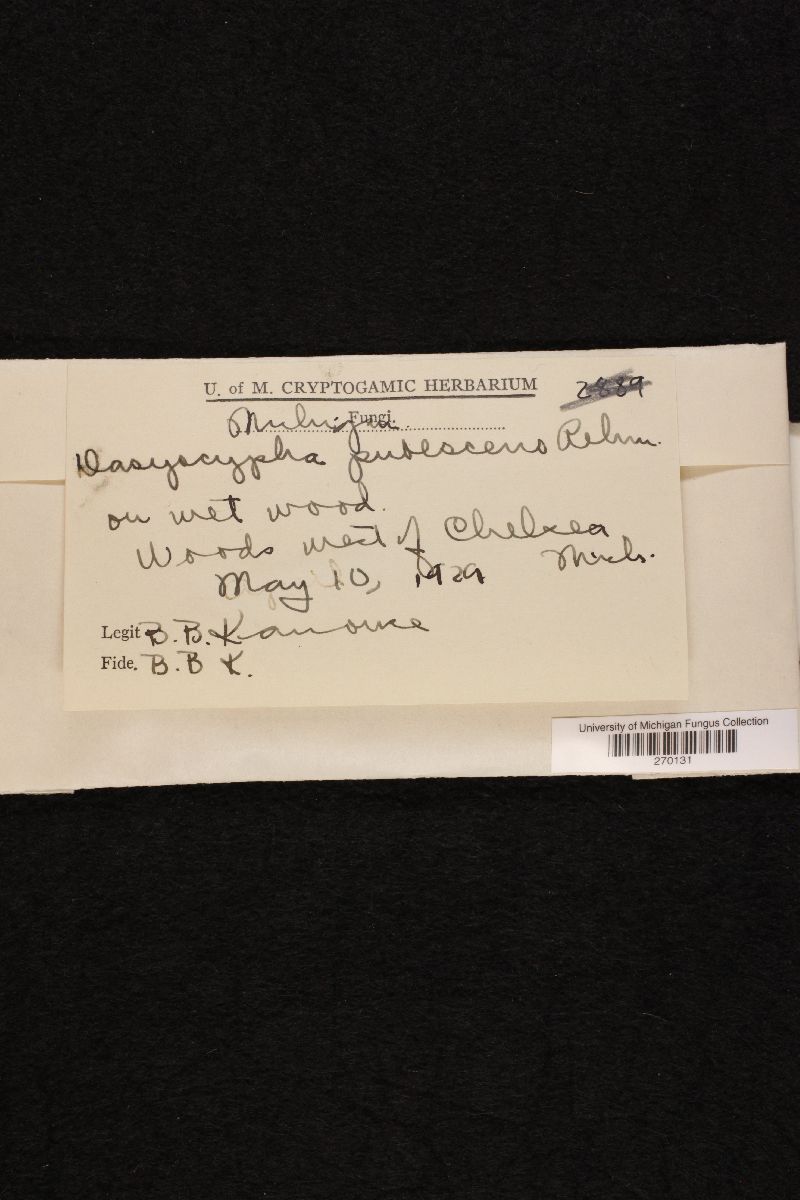 U. of M. CRYPTOGAMIC HERBARIUM 2889
Michigan Fungi.
Dasyscypha pubescens Rehm.
on wet wood.
Woods west of Chelsea
Mich.
May 10, 1929
Legit B. B. Kanouse
Fide. B. B K.
University of Michigan Fungus Collection
270131